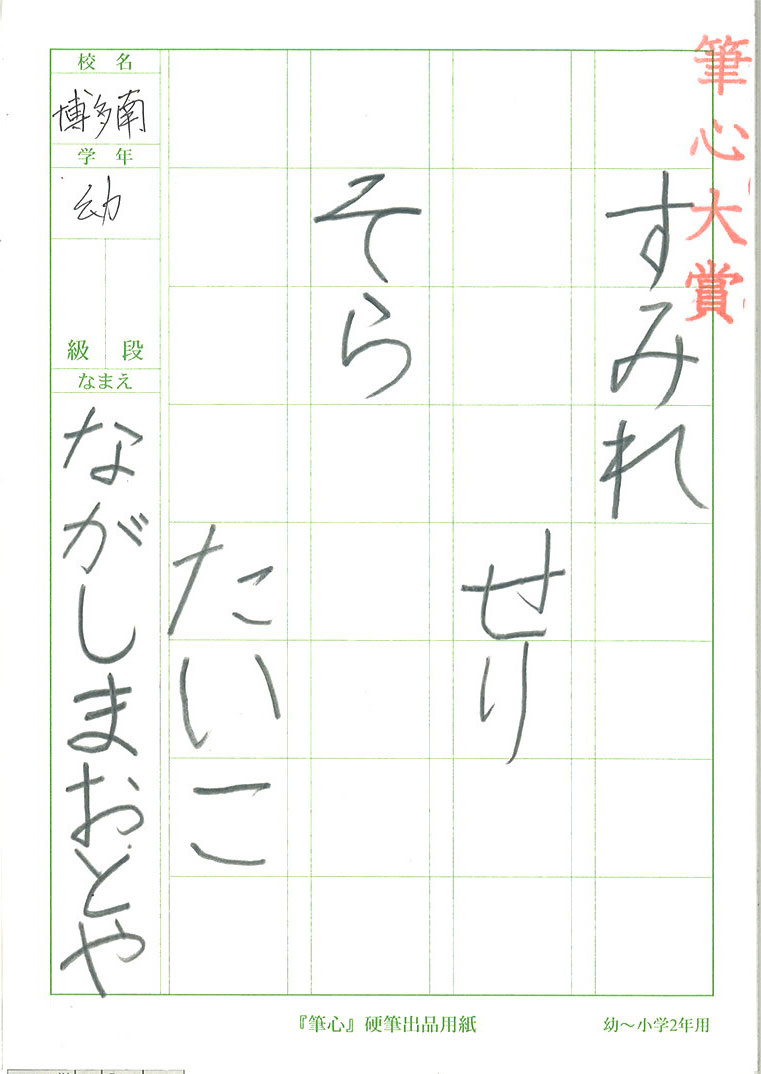 筆心大賞
すみれ
せり
そら
たいこ
校名
博多南
学年
幼
級 段
なまえ
ながしまおとや
『筆心』硬筆出品用紙
幼～小学2年用